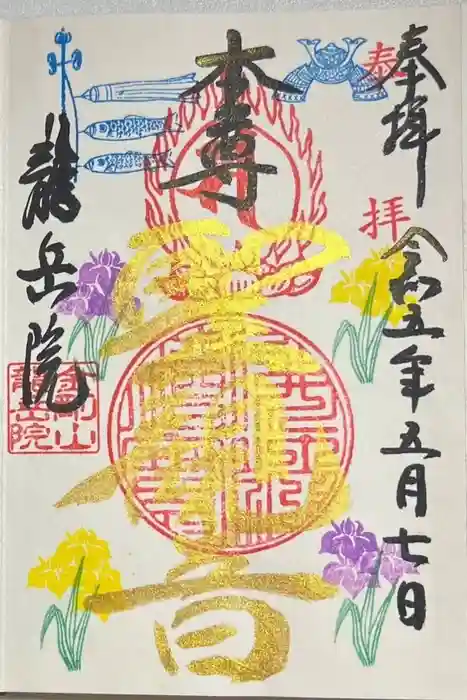 奉拝
奉
令和五年五月七日
本尊
聖観音
龍岳院
金剛山
龍岳院